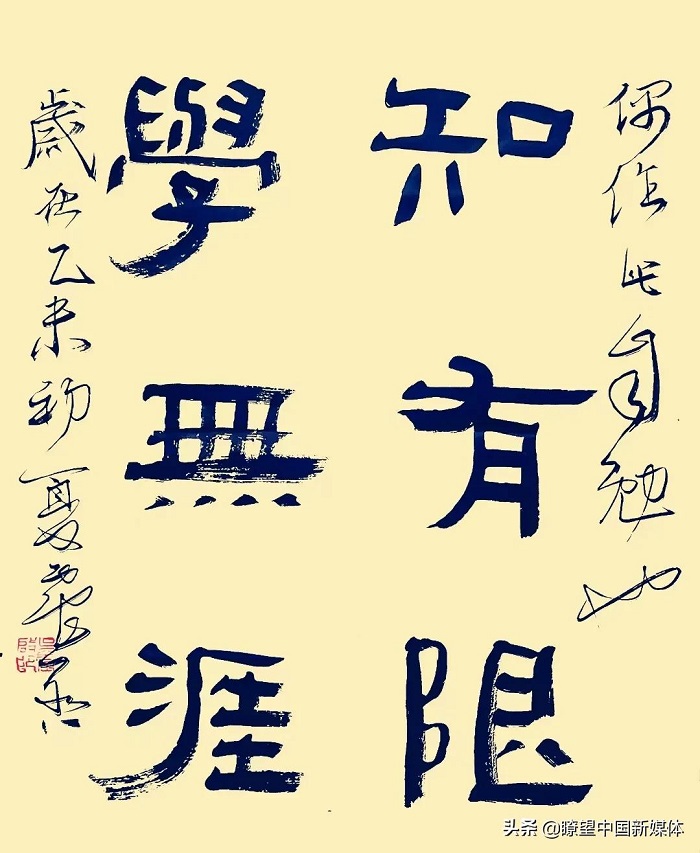 偶作此自勉也
知有限
學無涯
歲在乙未初夏
头条 @瞭望中国新媒体